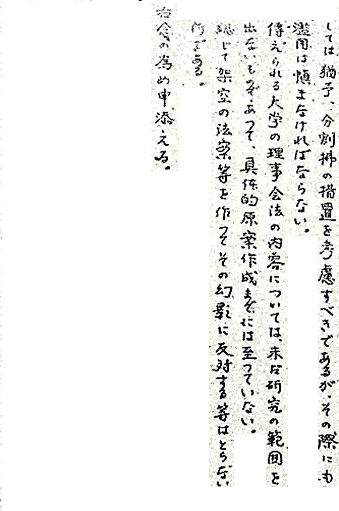 しては猶予、分割拂の措置を考慮すべきであるが、その際にも
濫用は愼まなければならない。
傳えられる大学の理事会法の内容については、未だ研究の範囲を
出ないものであつて、具体的原案作成までには至つていない。
総じて架空の法案等を作つてその幻影に反対する等はとらない
所である。
右念の為め申添える。